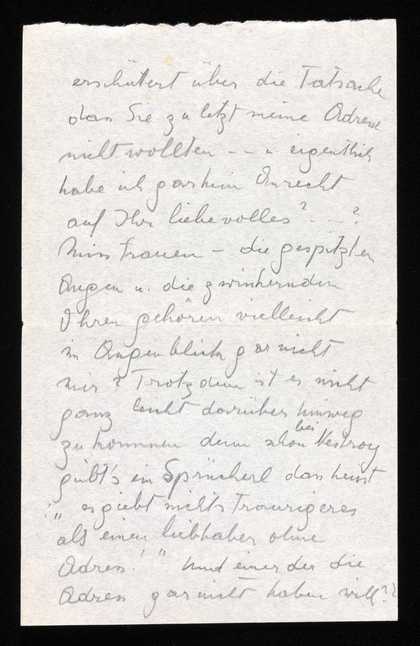 erschüttert über die Tatsache
dass Sie zuletzt meine Adresse
nicht wollten -- u eigentlich
habe ich gar kein Anrecht
auf Ihr liebevolles? ---?
Miss trauen - die gespitzten
Augen u. die zwinkernden
Ohren gehören vielleicht
im Augenblick gar nicht
mir? Trotzdem ist es nicht
ganz leicht darüber hinweg
zu kommen denn schon bei Nestroy
giebt's ein Sprücherl das heisst
: „ es giebt nichts Traurigeres
als einen liebhaber ohne
Adress! " Und einer der die
Adress gar nicht haben will??